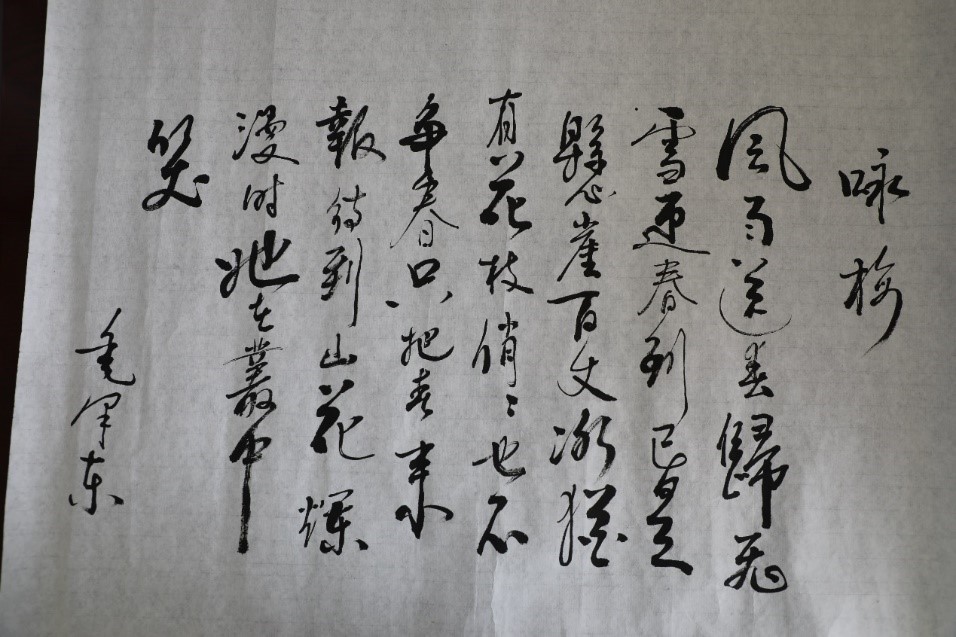 咏梅
風雨送春歸飛
雪迎春到已是
縣心崖百丈冰猶
有花枝俏〻也不
争春只把春来
報待到山花爛
漫时她在叢中
笑
毛泽东